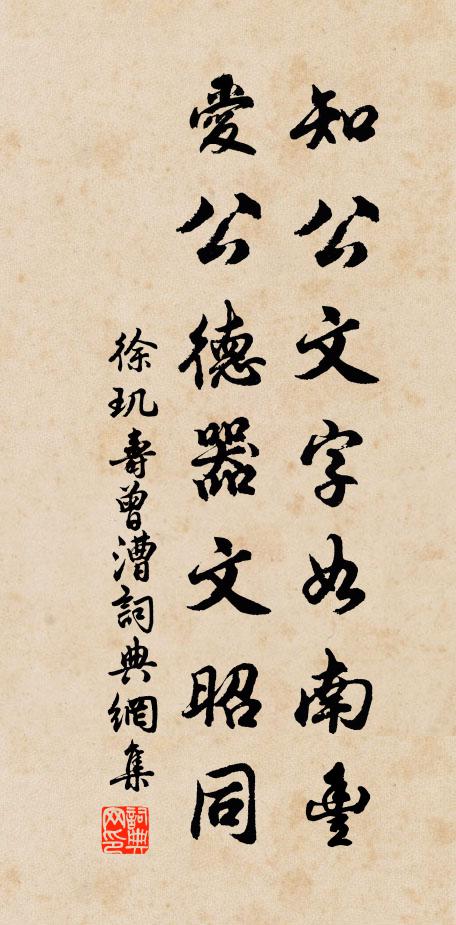 知公文字如南豐
愛公德器文昭同
徐玑壽曾漕詞典網集
詞典網印